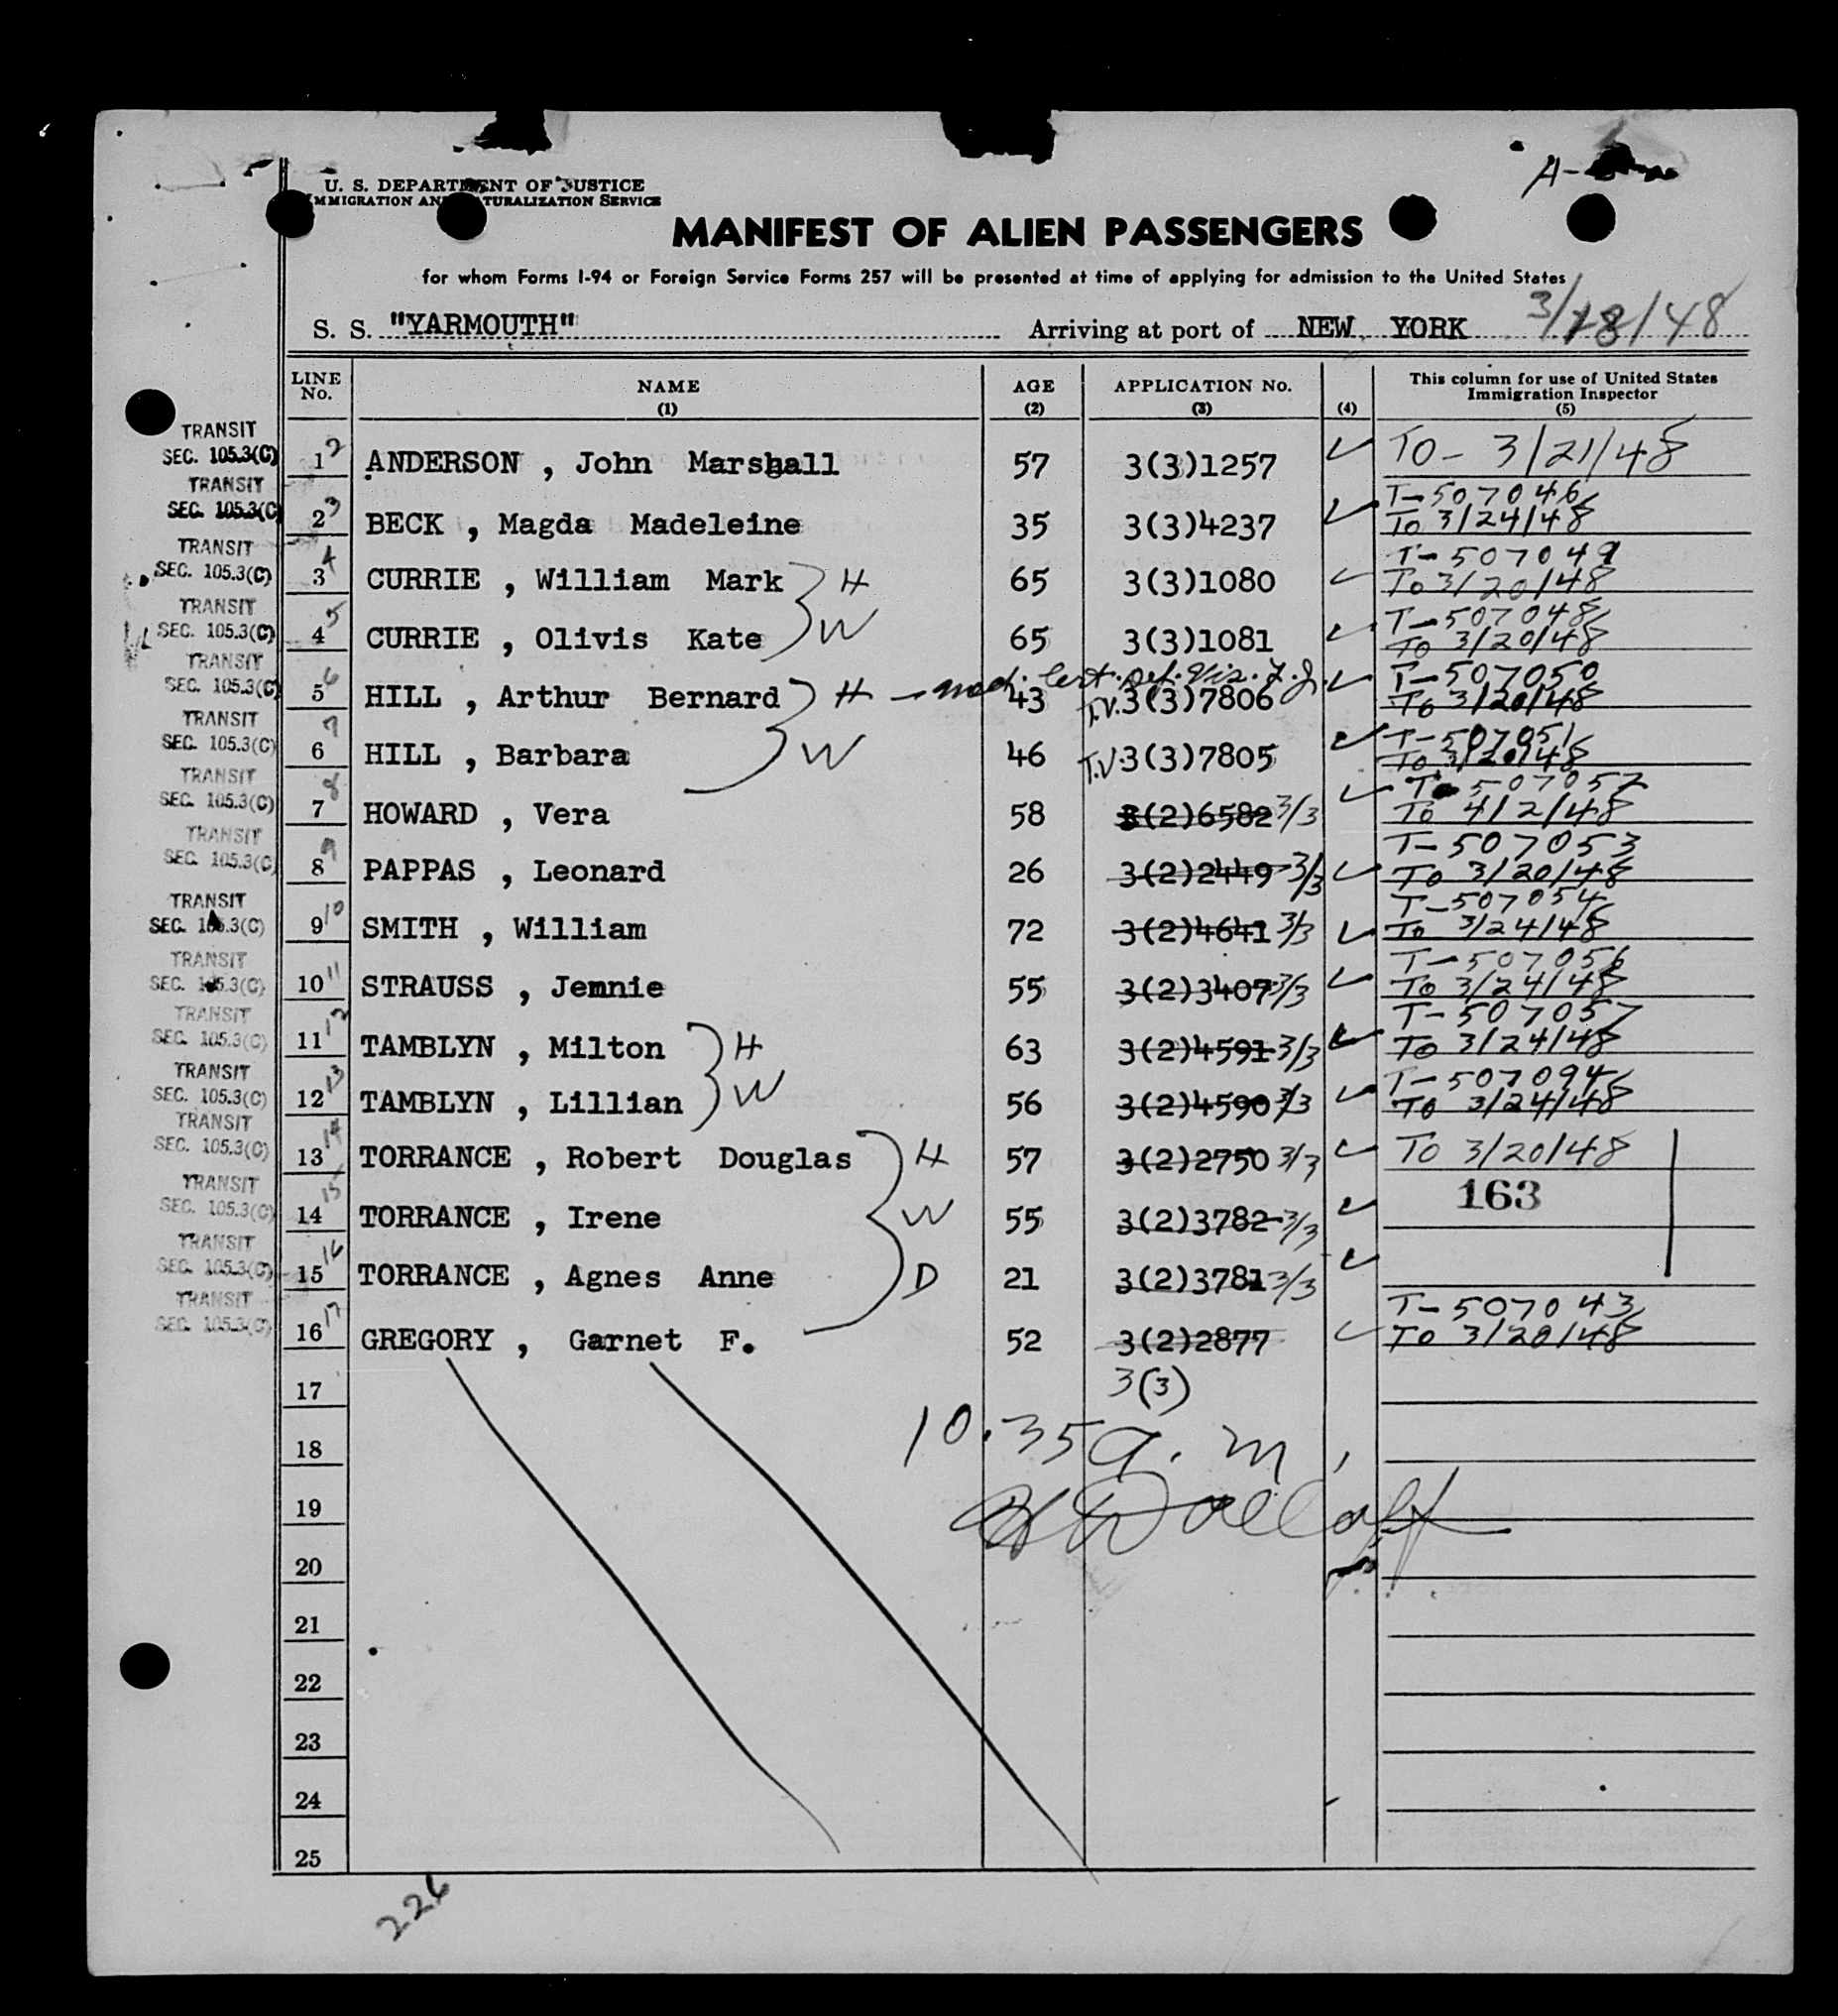 A-
U. S. DEPARTMENT OF JUSTICE
IMMIGRATION AND NATURALIZATION SERVICE
MANIFEST OF ALIEN PASSENGERS
for whom Forms I-94 or Foreign Service Forms 257 will be presented at time of applying for admission to the United States
S. S. "YARMOUTH" Arriving at port of NEW YORK 3/18/48
LINE No. NAME (1) AGE (2) APPLICATION No. (3) (4) This column for use of United States Immigration Inspector (5)
TRANSIT SEC. 105.3(C) 1 2 ANDERSON , John Marshall 57 3(3)1257 ✓ TO - 3/21/48
TRANSIT SEC. 105.3(C) 2 3 BECK , Magda Madeleine 35 3(3)4237 ✓ T-507046 To 3/24/48
TRANSIT SEC. 105.3(C) 3 4 CURRIE , William Mark H 65 3(3)1080 ✓ T-507049 To 3/20/48
TRANSIT SEC. 105.3(C) 4 5 CURRIE , Olivis Kate W 65 3(3)1081 ✓ T-507048 To 3/20/48
TRANSIT SEC. 105.3(C) 5 6 HILL , Arthur Bernard H - med. cert. 43 T.V. 3(3)7806 ✓ T-507050 To 3/20/48
TRANSIT SEC. 105.3(C) 6 7 HILL , Barbara W 46 T.V. 3(3)7805 ✓ T-507051 To 3/20/48
TRANSIT SEC. 105.3(C) 7 8 HOWARD , Vera 58 3(2)6582 3/3 ✓ T-507052 To 4/2/48
TRANSIT SEC. 105.3(C) 8 9 PAPPAS , Leonard 26 3(2)2449 3/3 ✓ T-507053 To 3/20/48
TRANSIT SEC. 105.3(C) 9 10 SMITH , William 72 3(2)4641 3/3 ✓ T-507054 To 3/24/48
TRANSIT SEC. 105.3(C) 10 11 STRAUSS , Jemnie 55 3(2)3407 3/3 ✓ T-507056 To 3/24/48
TRANSIT SEC. 105.3(C) 11 12 TAMBLYN , Milton H 63 3(2)4591 3/3 ✓ T-507057 To 3/24/48
TRANSIT SEC. 105.3(C) 12 13 TAMBLYN , Lillian W 56 3(2)4590 3/3 ✓ T-507094 To 3/24/48
TRANSIT SEC. 105.3(C) 13 14 TORRANCE , Robert Douglas H 57 3(2)2750 3/3 ✓ To 3/20/48
TRANSIT SEC. 105.3(C) 14 15 TORRANCE , Irene W 55 3(2)3782 3/3 ✓ 163
TRANSIT SEC. 105.3(C) 15 16 TORRANCE , Agnes Anne D 21 3(2)3781 3/3 ✓
TRANSIT SEC. 105.3(C) 16 17 GREGORY , Garnet F. 52 3(2)2877 ✓ T-507043 To 3/20/48
17 3(3)
18 10.35 a. m.
19
20
21
22
23
24
25
226